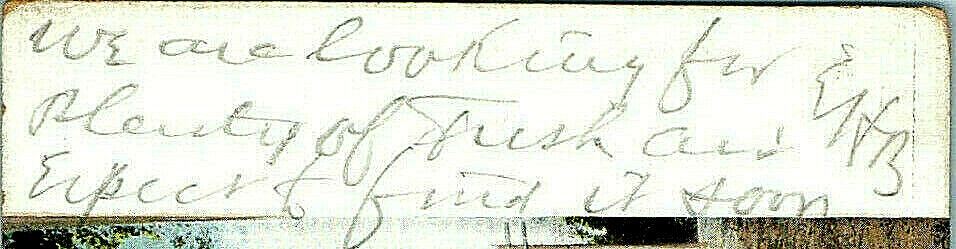 We are looking for
Plenty of Fresh air
Expect to find it soon
EHB